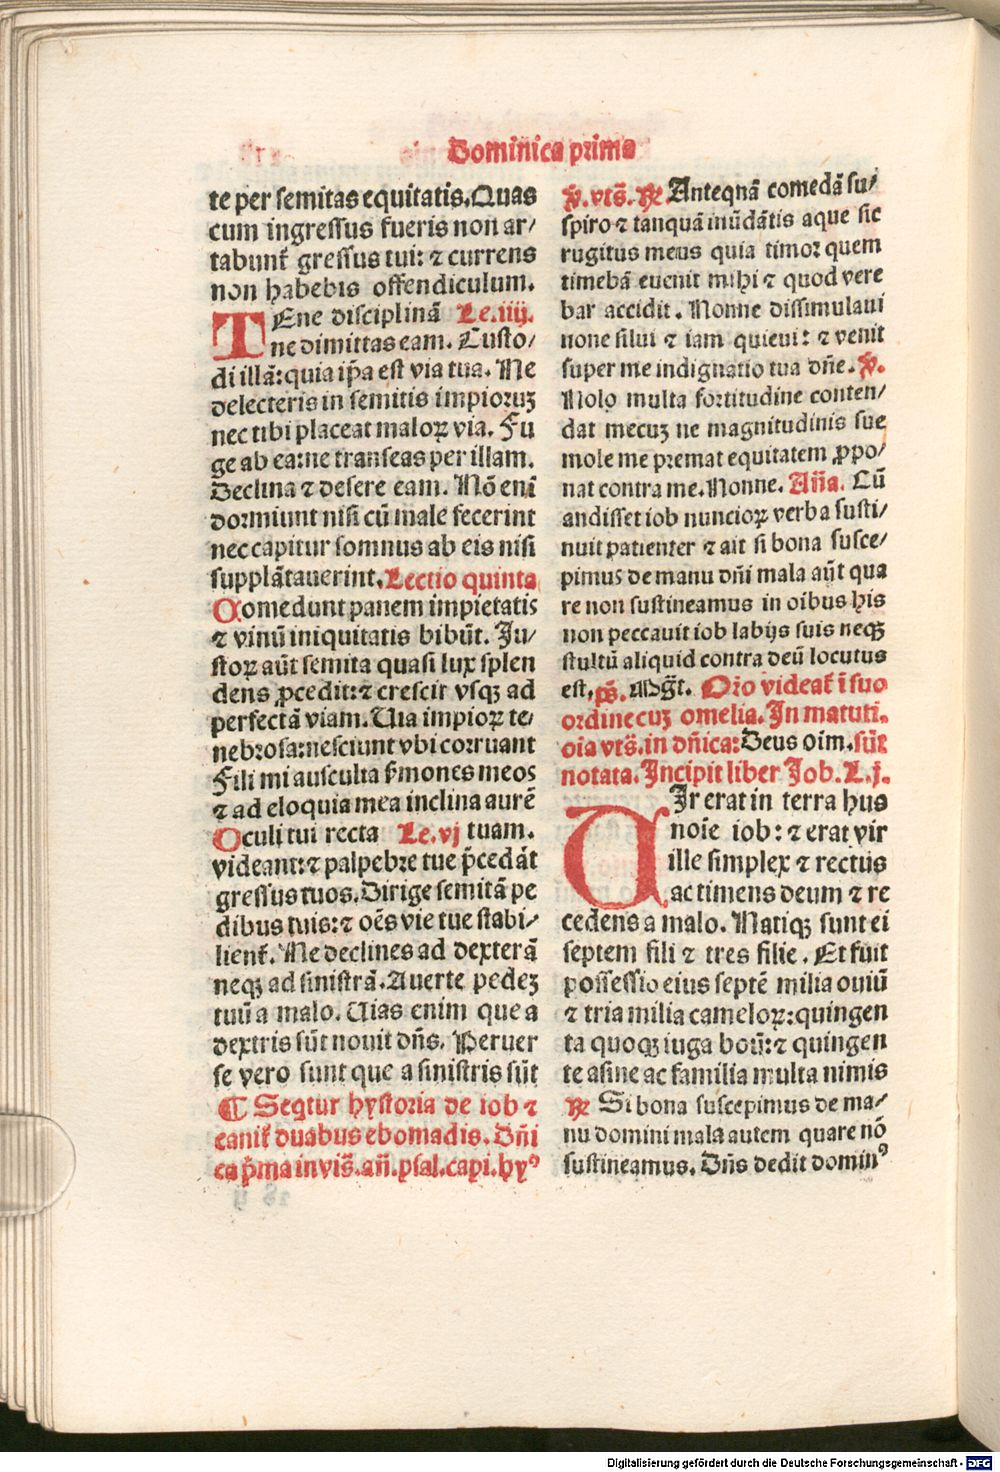 Dominica prima
te per semitas equitatis. Quas
cum ingressus fueris non ar/
tabunt᷑ gressus tui: ⁊ currens
non habebis offendiculum.
TEne disciplinã Le.iiij.
ne dimittas eam. Custo/
di illã: quia ip̃a est via tua. Ne
delecteris in semitis impioruʒ
nec tibi placeat maloꝝ via. Fu
ge ab ea: ne transeas per illam.
Declina ⁊ desere eam. Nõ eni᷑
dormiunt nisi cũ male fecerint
nec capitur somnus ab eis nisi
supplãtauerint. Lectio quinta
Comedunt panem impietatis
⁊ vinũ iniquitatis bibũt. Ju/
stoꝝ aũt semita quasi lux splen
dens ꝓcedit: ⁊ crescit vsqʒ ad
perfectã viam. Uia impioꝝ te/
nebrosa: nesciunt vbi corruant
Fili mi ausculta s̃mones meos
⁊ ad eloquia mea inclina aurẽ
Oculi tui recta Le.vj tuam.
videant: ⁊ palpebre tue p̃cedãt
gressus tuos. Dirige semitã pe
dibus tuis: ⁊ oẽs vie tue stabi/
lient᷑. Ne declines ad dexterã
neqʒ ad sinistrã. Auerte pedeʒ
tuũ a malo. Uias enim que a
dextris sũt nouit dñs. Peruer
se vero sunt que a sinistris sũt
¶ Seqtur hystoria de iob ⁊
canit᷑ duabus ebomadis. Dñi
ca p̃ma in vis̃. añ. psal. capi. hyꝰ
℣. vts̃. ℟. Anteqnã comedã su/
spiro ⁊ tanquã inũdãtis aque sic
rugitus meus quia timor quem
timebã euenit mihi ⁊ quod vere
bar accidit. Nonne dissimulaui
none silui ⁊ iam quieui: ⁊ venit
super me indignatio tua dñe. ℣.
Nolo multa fortitudine conten/
dat mecuʒ ne magnitudinis sue
mole me premat equitatem ꝓpo/
nat contra me. Nonne. Añа. Cũ
audisset iob nuncioꝝ verba susti/
nuit patienter ⁊ ait si bona susce/
pimus de manu dñi mala aũt qua
re non sustineamus in oĩbus his
non peccauit iob labijs suis neqʒ
stultũ aliquid contra deũ locutus
est. ps̃. Mg̃t. Oro videat᷑ ĩ suo
ordine cuʒ omelia. In matuti.
oia vts̃. in dñica: Deus oim. sũt
notata. Incipit liber Job. L.j.
UIr erat in terra hus
noĩe iob: ⁊ erat vir
ille simplex ⁊ rectus
ac timens deum ⁊ re
cedens a malo. Natiqʒ sunt ei
septem filij ⁊ tres filie. Et fuit
possessio eius septẽ milia ouiũ
⁊ tria milia cameloꝝ: quingen
ta quoqʒ iuga boũ: ⁊ quingen
te asine ac familia multa nimis
℟ Si bona suscepimus de ma/
nu domini mala autem quare nõ
sustineamus. Dñs dedit dominꝰ
Digitalisierung gefördert durch die Deutsche Forschungsgemeinschaft - DFG